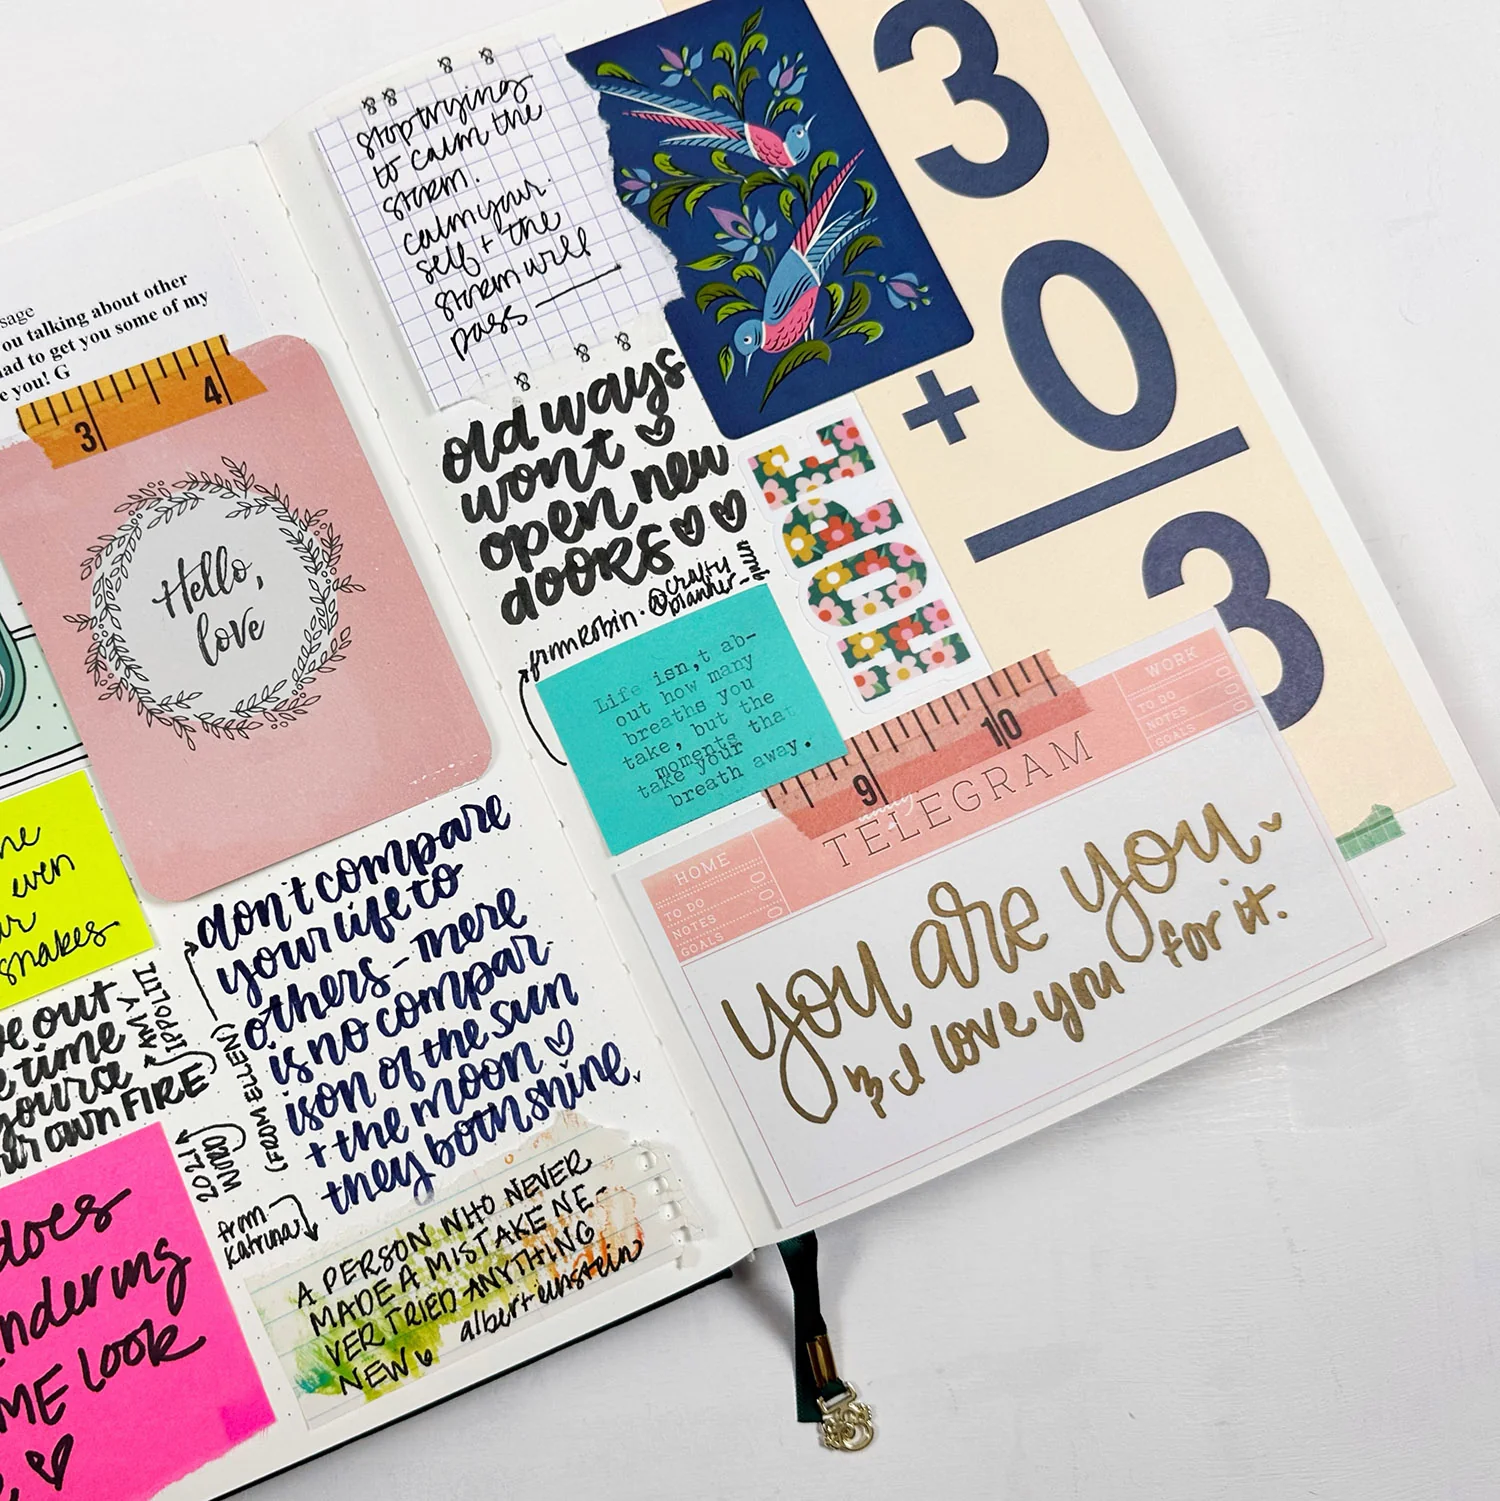 sage
ou talking about other
ad to get you some of my
e you! G
3 4
Hello,
love
even
snakes
e out
time
AMY
IPPOLITI
OWN FIRE
2021
WORD
does
ndering
ME LOOK
don't compare
your life to
others - There
is no compar-
ison of the sun
+ the moon
they both shine.
(FROM ELLEN)
from
Katrina
A PERSON WHO NEVER
MADE A MISTAKE NE-
VER TRIED ANYTHING
NEW
albert einstein
stop trying
to calm the
storm.
calm your
self + the
storm will
pass
old ways
wont
open new
doors
from robin. @crafty
planner-
Life isn,t ab-
out how many
breaths you
take, but the
moments that
take your
breath away.
HOPE
3
+ 0
3
9 10
TELEGRAM
HOME
TO DO
NOTES
GOALS
WORK
TO DO
NOTES
GOALS
you are you
I love you for it.